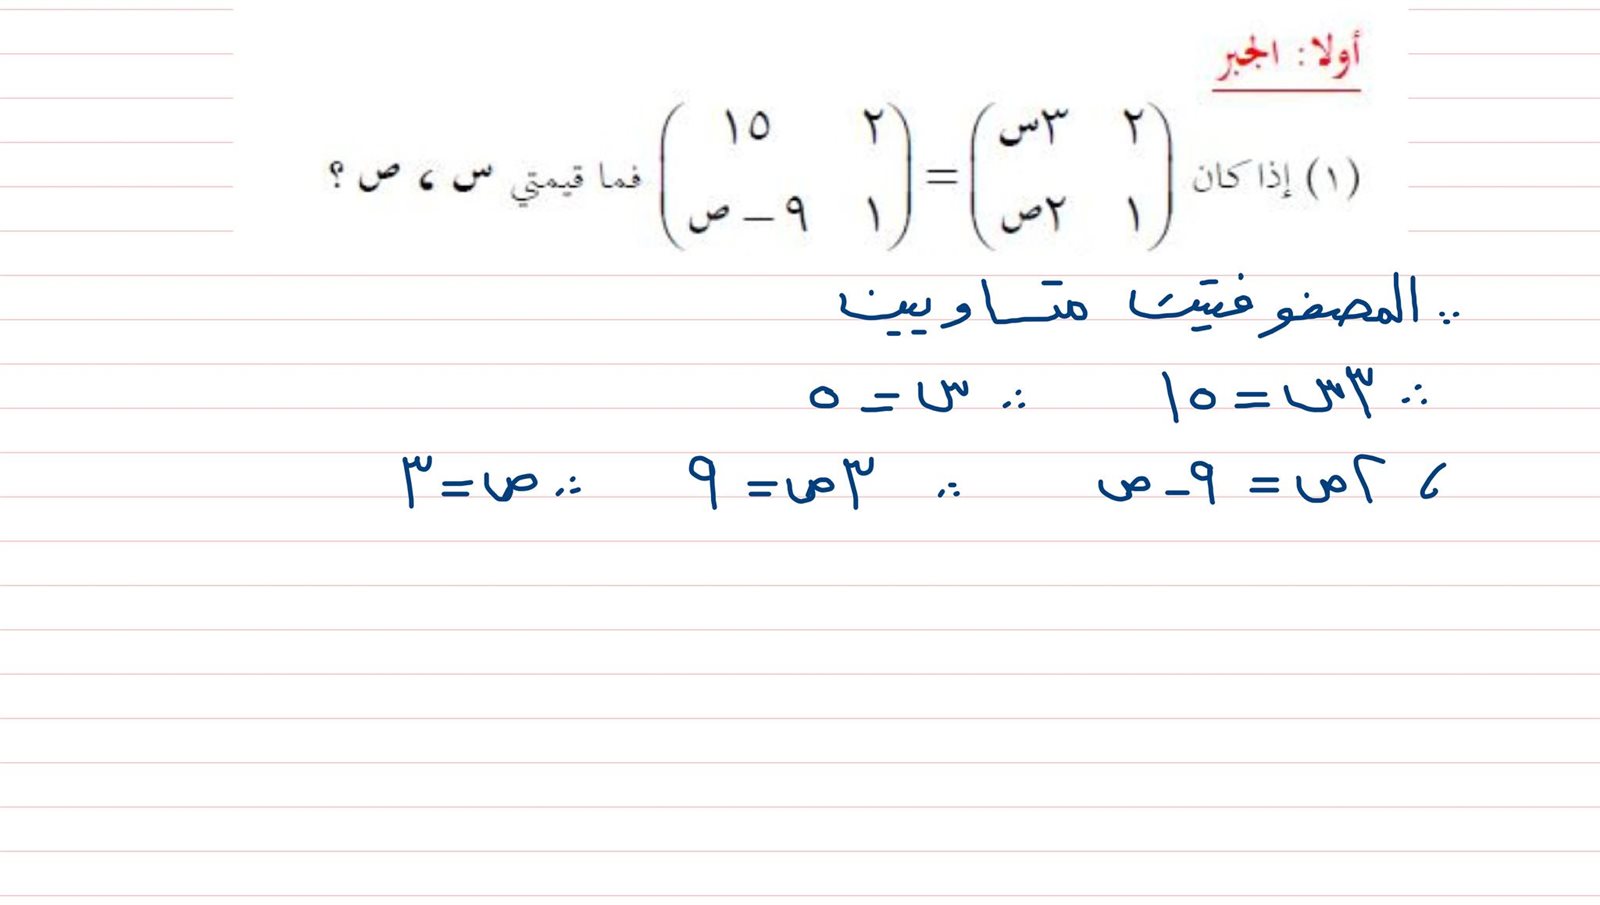 أولا: الجبر
(١) إذا كان (٢ ٣س ١ ٢ص) = (٢ ١٥ ١ ٩ – ص) فما قيمتي س ، ص ؟
∵ المصفوفتين متساويين
∴ ٣س = ١٥ ∴ س = ٥
، ٢ص = ٩ - ص ∴ ٣ص = ٩ ∴ ص = ٣